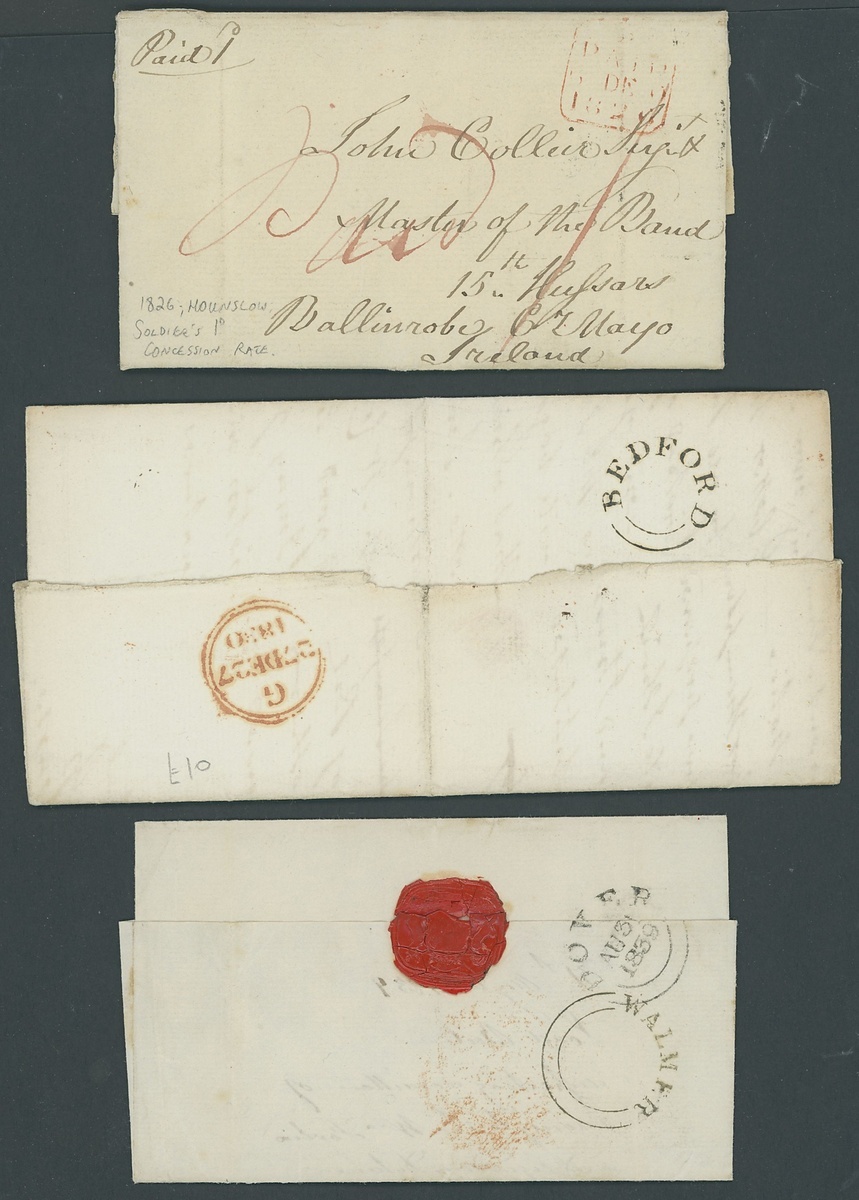 Paid 1D
PAID
DE
182
John Collier Serjt
Master of the Band
15th Hussars
Ballinrobe Cy Mayo
Ireland
1826, HOUNSLOW,
SOLDIER'S 1D
CONCESSION RATE.
BEDFORD
G
27DE27
1830
£10
DOVER
AU 31
1839
WALMER